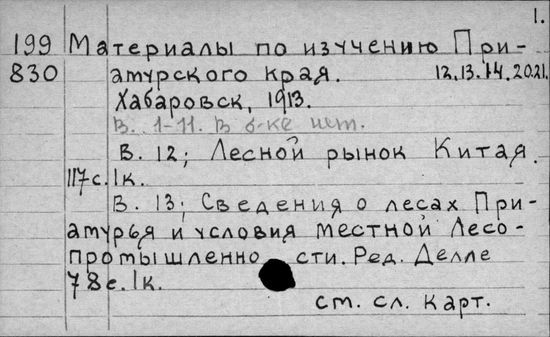 1.
199 Материалы по изучению При-
830 амурского края. 12.13.14.20.21.
Хабаровск, 1913.
В. 1-11. В б-ке нет.
В. 12; Лесной рынок Китая.
117с. 1к.
В. 13; Сведения о лесах При-
амурья и условия местной Лесо-
промышленно сти. Ред. Делле
78с. 1к.
см. сл. карт.